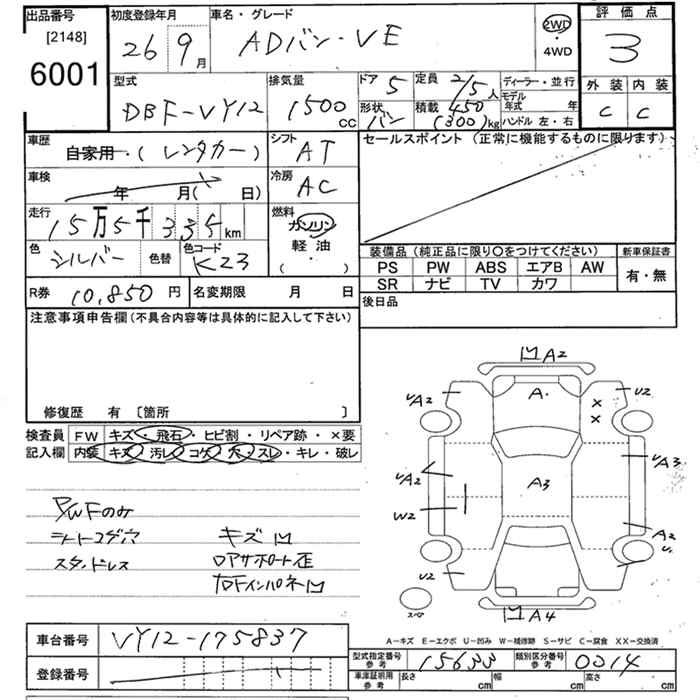 出品番号
[2148]
6001
初度登録年月
26 9月
車名・グレード
ADバン・VE
2WD
・
4WD
評価点
3
外装 内装
C C
型式
DBF-VY12
排気量
1500cc
ドア 5
形状 バン
定員 2/5人
積載 450(300)kg
ディーラー・並行
モデル年式 年
ハンドル 左・右
車歴
自家用・(レンタカー)
シフト
AT
車検
年 月( 日)
冷房
AC
走行
15万5千335km
燃料
ガソリン
軽油
( ・ )
色
シルバー
色替
色コード
K23
セールスポイント (正常に機能するものに限ります)
装備品 (純正品に限り〇をつけてください)
PS PW ABS エアB AW
SR ナビ TV カワ
新車保証書
有・無
R券 10,850円
名変期限 月 日
後日品
注意事項申告欄(不具合内容等は具体的に記入して下さい)
修復歴 有 〔箇所 〕
検査員 FW キズ・飛石・ヒビ割・リペア跡・×要
記入欄 内装 キズ・汚レ・コゲ・穴・スレ・キレ・破レ
P/WFのみ
シートコゲ穴 キズ凹
スタンドレス
凹A2
UA2 A・ U2
××
UA2 A3 UA3
W2
U2 A2
凹A4
スペア
A-キズ E-エクボ U-凹み W-補修跡 S-サビ C-腐食 XX-交換済
車台番号 VY12-175837
登録番号
型式指定番号 参考 15633
類別区分番号 参考 0014
車庫証明用 参考 長さ cm 幅 cm 高さ cm